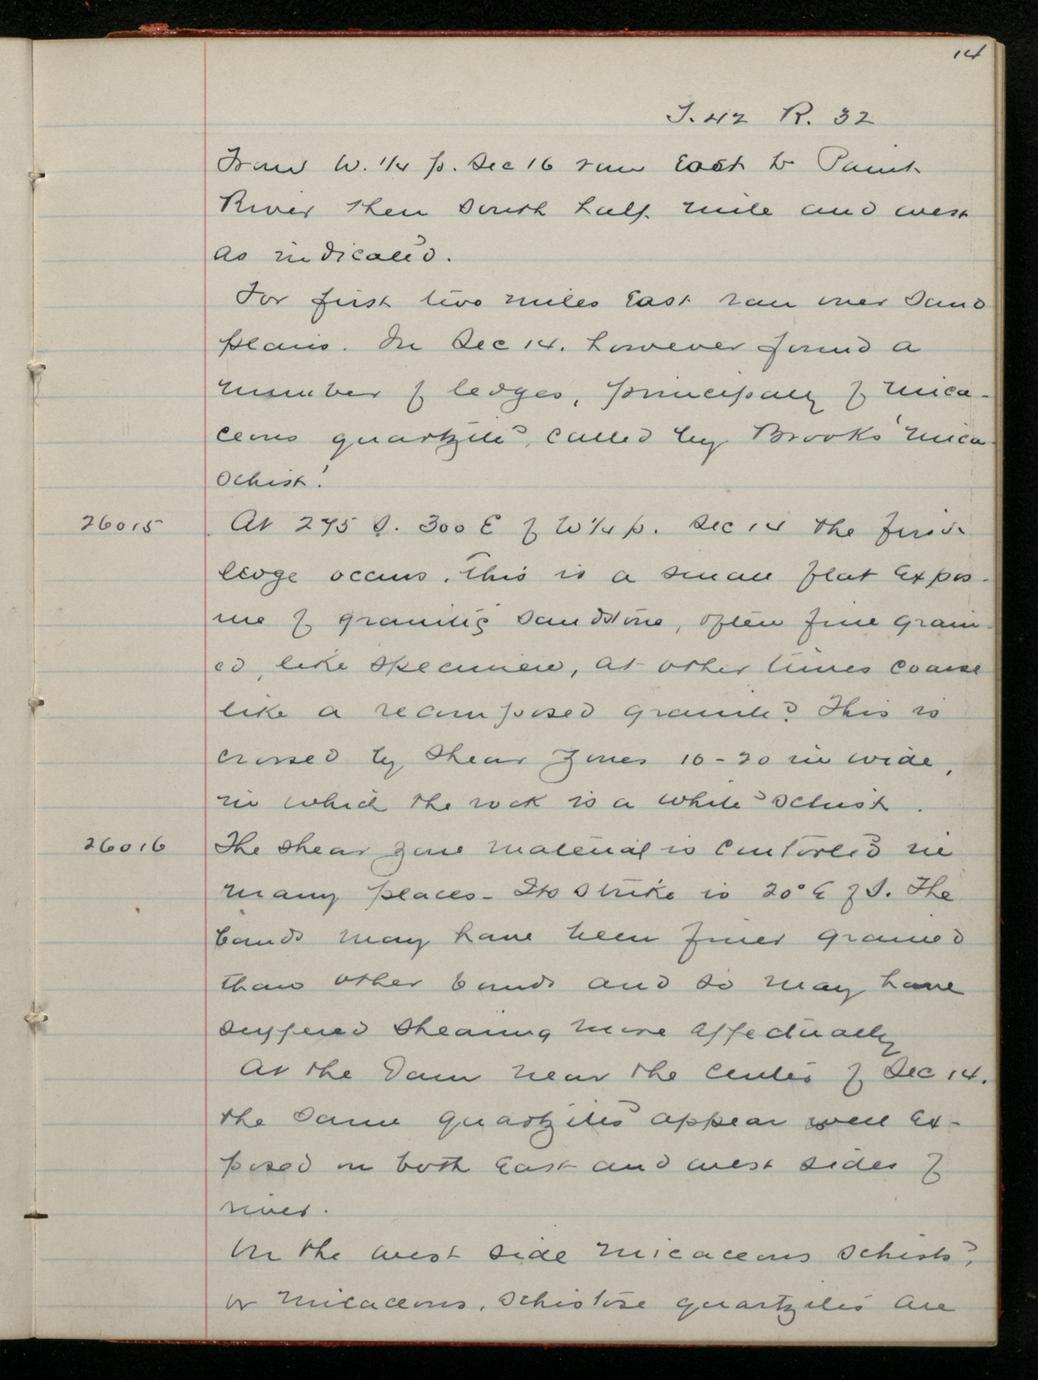 14
T. 42 R. 32
From W. 1/4 p. Sec 16 ran East to Paint
River then south half mile and west
as indicated.
For first two miles East ran over sand
plains. In Sec 14. however found a
number of ledges, principally of mica-
ceous quartzite, called by Brooks 'mica
schist.'
26015 At 275 S. 300 E of W 1/4 p. Sec 14 the first
ledge occurs. This is a small flat expos-
ure of granitic sandstone, often fine grain-
ed, like specimen, at other times coarse
like a recomposed granite. This is
crossed by shear zones 10-20 in wide,
in which the rock is a white schist.
26016 The shear zone material is contorted in
many places- Its strike is 20° E of S. The
bands may have been finer grained
than other bands and so may have
suffered shearing more affectually
At the Dam near the center of Sec 14.
the same quartzites appear well ex-
posed on both East and west sides of
river.
On the west side micaceous schists,
or micaceous, schistose quartzites are